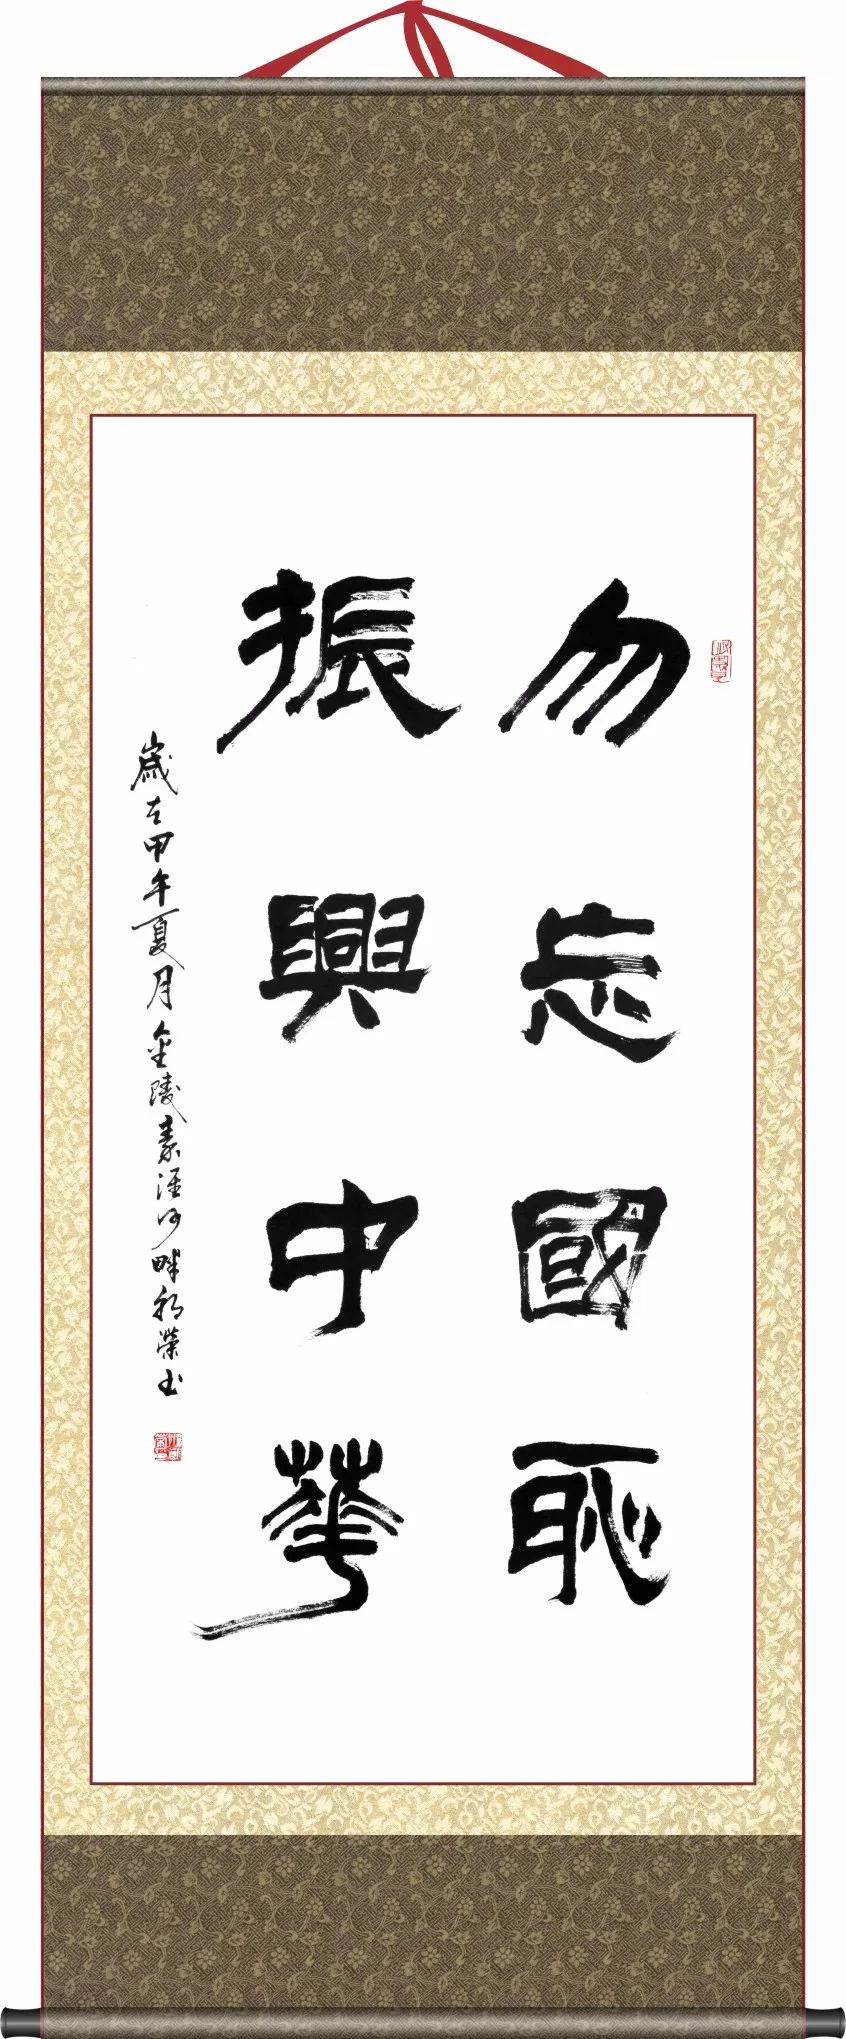 勿忘國恥
振興中華
歲在甲午夏月金陵秦淮河畔 榮書